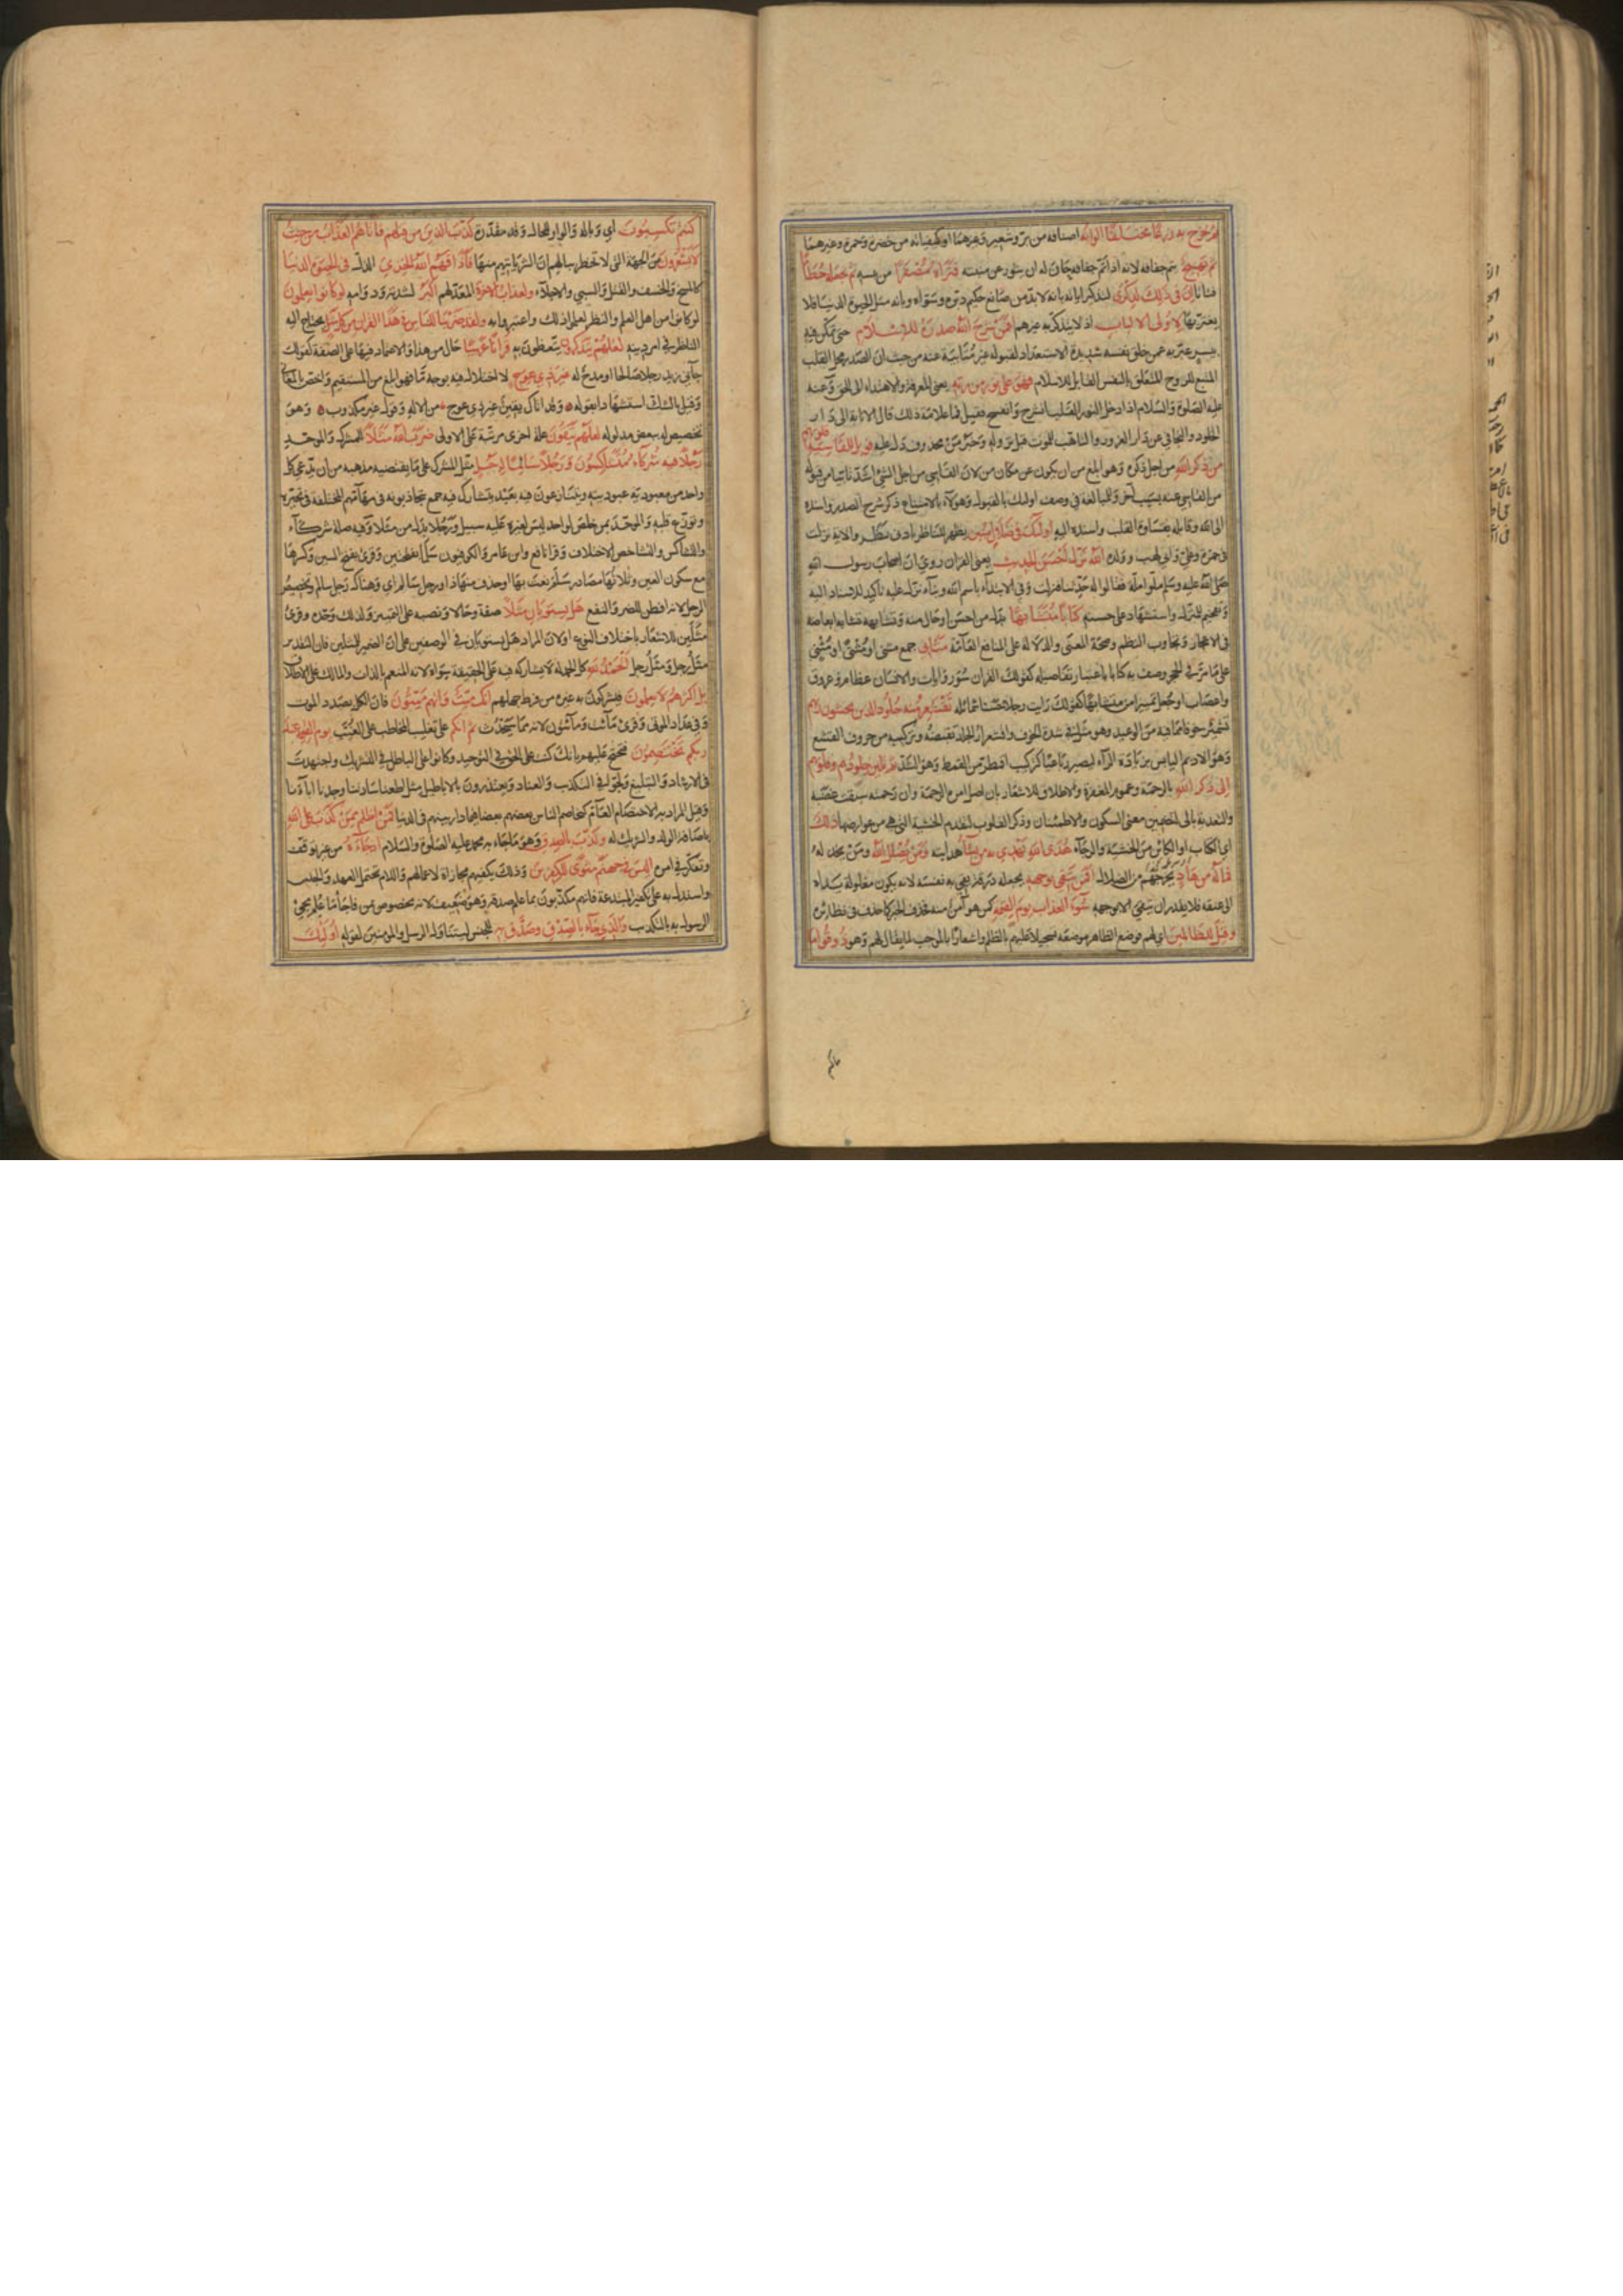 ثم يخرج به زرعا مختلفا الوانه اصنافه من بر وشعير وغيرهما او كيفياته من خضرة وحمرة وغيرهما
ثم يهيج يتم جفافه لانه اذا تم جفافه حان له ان يثور عن منبته فتراه مصفرا من يبسه ثم يجعله حطاما
فتاتا ان في ذلك لذكرى لتذكيرا بانه لا بد من صانع حكيم دبره وسواه وبانه مثل الحيوة الدنيا فلا
يغتر بها لاولى الالباب اذ لا يتذكر به غيرهم افمن شرح الله صدره للاسلام حتى تمكن فيه
بيسر عبر به عمن خلق نفسه شديدة الاستعداد لقبوله غير متأبية عنه من حيث ان الصدر محل القلب
المنبع للروح المتعلق بالنفس القابل للاسلام فهو على نور من ربه يعني المعرفة والاهتداء الى الحق وعنه
عليه الصلوة والسلام اذا دخل النور القلب انشرح وانفسح فقيل فما علامة ذلك قال الانابة الى دار
الخلود والتجافي عن دار الغرور والتاهب للموت قبل نزوله وخبر من محذوف دل عليه فويل للقاسية قلوبهم
من ذكر الله من اجل ذكره وهو ابلغ من ان يكون عن مكان من لان القاسي من اجل الشئ اشد تابيا من قبوله
من القاسي عنه بسبب آخر وللمبالغة في وصف اولئك بالقبول وهؤلاء بالامتناع ذكر شرح الصدر واسنده
الى الله وقابله بقساوة القلب واسنده اليه اولئك في ضلال مبين يظهر للناظر بادنى نظر والاية نزلت
في حمزة وعلي وابي لهب وولده الله نزل احسن الحديث يعنى القران روي ان اصحاب رسول الله
صلى الله عليه وسلم ملوا ملة فقالوا له حدثنا فنزلت وفي الابتداء باسم الله وبناء نزل عليه تأكيد للاسناد اليه
وتفخيم للمنزل واستشهاد على حسنه كتابا متشابها بدل من احسن او حال منه وتشابهه تشابه ابعاضه
في الاعجاز وتجاوب النظم وصحة المعنى والدلالة على المنافع العامة مثاني جمع مثنى او مثنى او مثني
على ما مر في الحجر وصف به كتابا باعتبار تفاصيله كقولك القران سور وايات والانسان عظام وعروق
واعصاب او جعل تمييزا من متشابها كقولك رايت رجلا حسنا شمائله تقشعر منه جلود الذين يخشون ربهم
تشمئز خوفا مما فيه من الوعيد وهو مثل في شدة الخوف واقشعرار الجلد تقبضه وتركيبه من حروف القشع
وهو الاديم اليابس بزيادة الراء ليصير رباعيا كتركيب اقمطر من القمط وهو الشد ثم تلين جلودهم وقلوبهم
الى ذكر الله بالرحمة وعموم المغفرة والاطلاق للاشعار بان اصل امره الرحمة وان رحمته سبقت غضبه
والتعدية بالى لتضمين معنى السكون والاطمئنان وذكر القلوب لتقدم الخشية التي هي من عوارضها ذلك
اي الكتاب او الكائن من الخشية والرجاء هدى الله يهدي به من يشاء هدايته ومن يضلل الله ومن يخذله
فما له من هاد يخرجهم من الضلال افمن يتقي بوجهه يجعله درقة يقي به نفسه لانه يكون مغلولة يداه
الى عنقه فلا يقدر ان يتقي الا بوجهه سوء العذاب يوم القيمة كمن هو آمن منه فحذف الخبر كما حذف في نظائره
وقيل للظالمين اي لهم فوضع الظاهر موضعه تسجيلا عليهم بالظلم واشعارا بالموجب لما يقال لهم وهو ذوقوا ما
ماكنتم
كنتم تكسبون اي وباله والواو للحال وقد مقدرة كذب الذين من قبلهم فاتاهم العذاب من حيث
لا يشعرون من الجهة التي لا تخطر ببالهم ان الشر ياتيهم منها فاذاقهم الله الخزي الذل في الحيوة الدنيا
كالمسخ والخسف والقتل والسبي والاجلاء ولعذاب الاخرة المعد لهم اكبر لشدته ودوامه لو كانوا يعلمون
لو كانوا من اهل العلم والنظر لعلموا ذلك واعتبروا به ولقد ضربنا للناس في هذا القران من كل مثل يحتاج اليه
الناظر في امر دينه لعلهم يتذكرون يتعظون به قرانا عربيا حال من هذا والاعتماد فيها على الصفة كقولك
جآئني زيد رجلا صالحا او مدح له غير ذي عوج لا اختلال فيه بوجه ما فهو ابلغ من المستقيم واختص بالمعاني
وقيل بالشك استشهادا بقوله وقد اتاك يقين غير ذي عوج من الاله وقول غير مكذوب وهو
تخصيص له ببعض مدلوله لعلهم يتقون علة اخرى مرتبة على الاولى ضرب الله مثلا للمشرك والموحد
رجلا فيه شركاء متشاكسون ورجلا سالما لرجل مثل المشرك على ما يقتضيه مذهبه من ان يدعي كل
واحد من معبوديه عبوديته ويتنازعون فيه بعبد يتشارك فيه جمع يتجاذبونه في مهامهم المختلفة في تحيره
وتوزع قلبه والموحد بمن خلص لواحد ليس لغيره عليه سبيل ورجلا بدل من مثلا وفيه صلة شركآء
والتشاكس والتشاخص الاختلاف وقرا نافع وابن عامر والكوفيون سلما بفتحتين وقرئ بفتح السين وكسرها
مع سكون العين وثلاثتها مصادر سلم نعت بها او حذف منها ذا ورجل سالم اي وهناك رجل سالم وتخصيص
الرجل لانه افطن للضر والنفع هل يستويان مثلا صفة وحالا ونصبه على التمييز ولذلك وحده وقرئ
مثلين للاشعار باختلاف النوع او لان المراد هل يستويان في الوصفين على ان الضمير للمثلين فان التقدير
مثل رجل ومثل رجل الحمد لله كل الحمد له لا يشاركه فيه على الحقيقة سواه لانه المنعم بالذات والمالك على الاطلاق
بل اكثرهم لا يعلمون فيشركون به غيره من فرط جهلهم انك ميت وانهم ميتون فان الكل بصدد الموت
وفي عداد الموتى وقرئ مائت ومائتون لانه مما سيحدث ثم انكم على تغليب المخاطب على الغيب يوم القيمة عند
ربكم تختصمون فتحتج عليهم بانك كنت على الحق في التوحيد وكانوا على الباطل في التشريك واجتهدت
في الارشاد والتبليغ ولجوا في التكذيب والعناد ويعتذرون بالاباطيل مثل اطعنا سادتنا ووجدنا اباءنا
وقيل المراد به الاختصام العام يخاصم الناس بعضهم بعضا فيما دار بينهم في الدنيا فمن اظلم ممن كذب على الله
باضافة الولد والشريك له وكذب بالصدق وهو ما جاء به محمد عليه الصلوة والسلام اذ جاءه من غير توقف
وتفكر في امره اليس في جهنم مثوى للكافرين وذلك يكفيهم مجازاة لاعمالهم واللام تحتمل العهد والجنس
واستدل به على تكفير المبتدعة فانهم مكذبون بما علم صدقه وهو ضعيف لانه مخصوص بمن فاجأ ما علم مجئ
الرسول به بالتكذيب والذي جاء بالصدق وصدق به للجنس ليتناول الرسل والمؤمنين لقوله اولئك